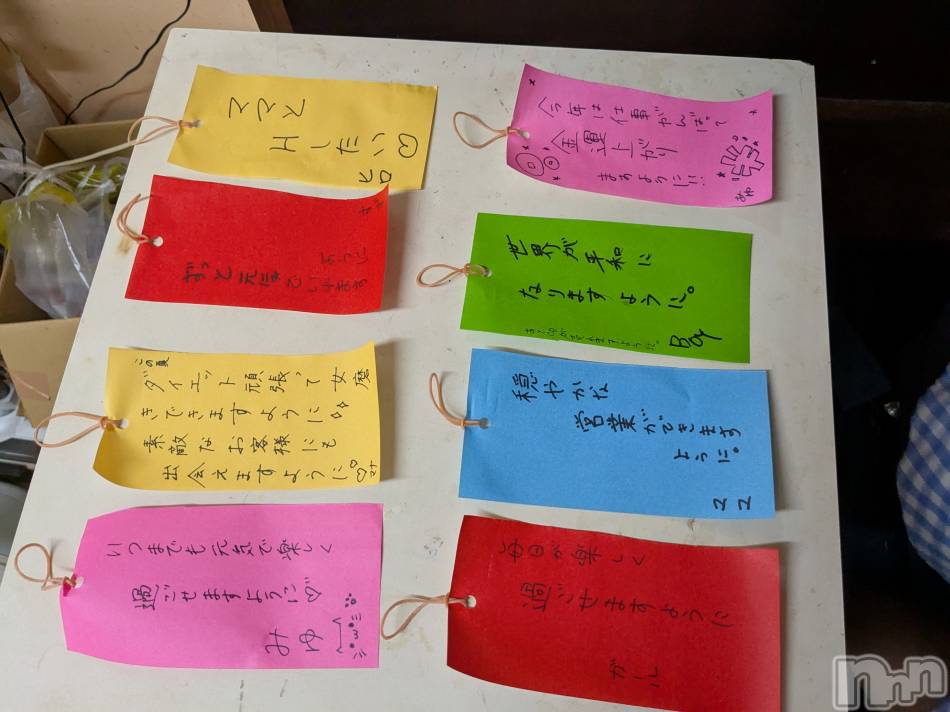 ママと
Hしたい♡
ヒロ
今年は仕事がんばって
金運上がり
まあように!!
あや
ずっと元気でいれます
ように
世界が平和に
なりますように。
Boy
この夏
ダイエット頑張って女磨
きできますように
素敵なお客様にも
出会えますように♡
マナ
穏やかな
営業ができます
ように。
ココ
いつまでも元気で楽しく
過ごせますように♡
みゆ
毎日が楽しく
過ごせますように
nnn